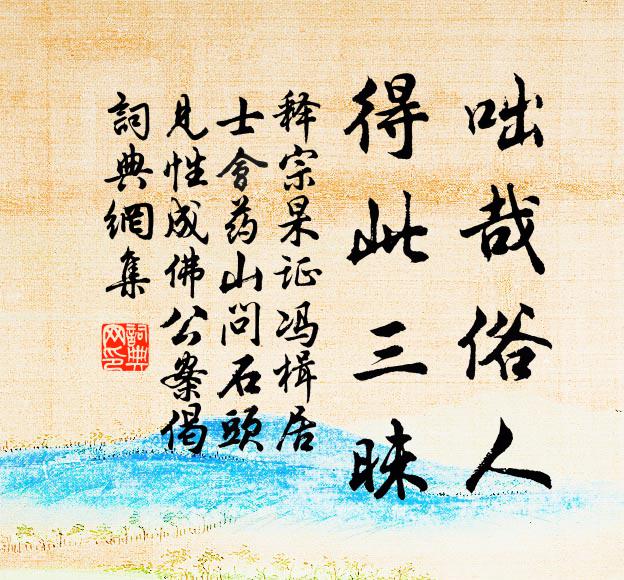 咄哉俗人
得此三昧
释宗杲证冯楫居
士會药山问石頭
见性成佛公案偈
詞典網集
詞典网印